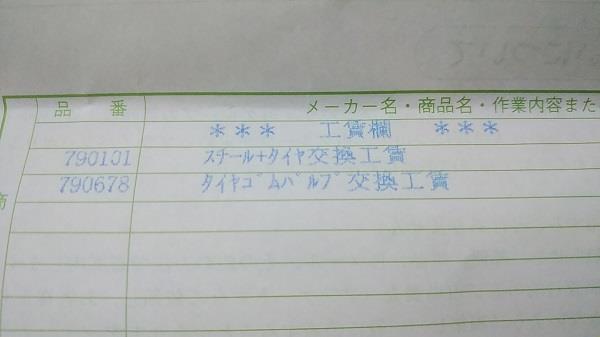 について
品 番 メーカー名・商品名・作業内容また
*** 工賃欄 ***
790101 ｽﾁｰﾙ+ﾀｲﾔ交換工賃
790678 ﾀｲﾔｺﾞﾑﾊﾞﾙﾌﾞ交換工賃
商